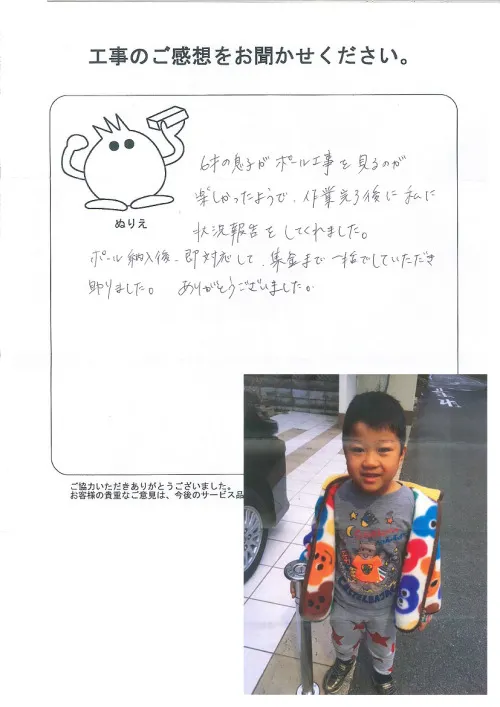 工事のご感想をお聞かせください。
ぬりえ
6才の息子がポール工事を見るのが
楽しかったようで、作業完了後に私に
状況報告をしてくれました。
ポール納入後、即対応して、集金まで一括でしていただき
助りました。 ありがとうございました。
ご協力いただきありがとうございました。
お客様の貴重なご意見は、今後のサービス品